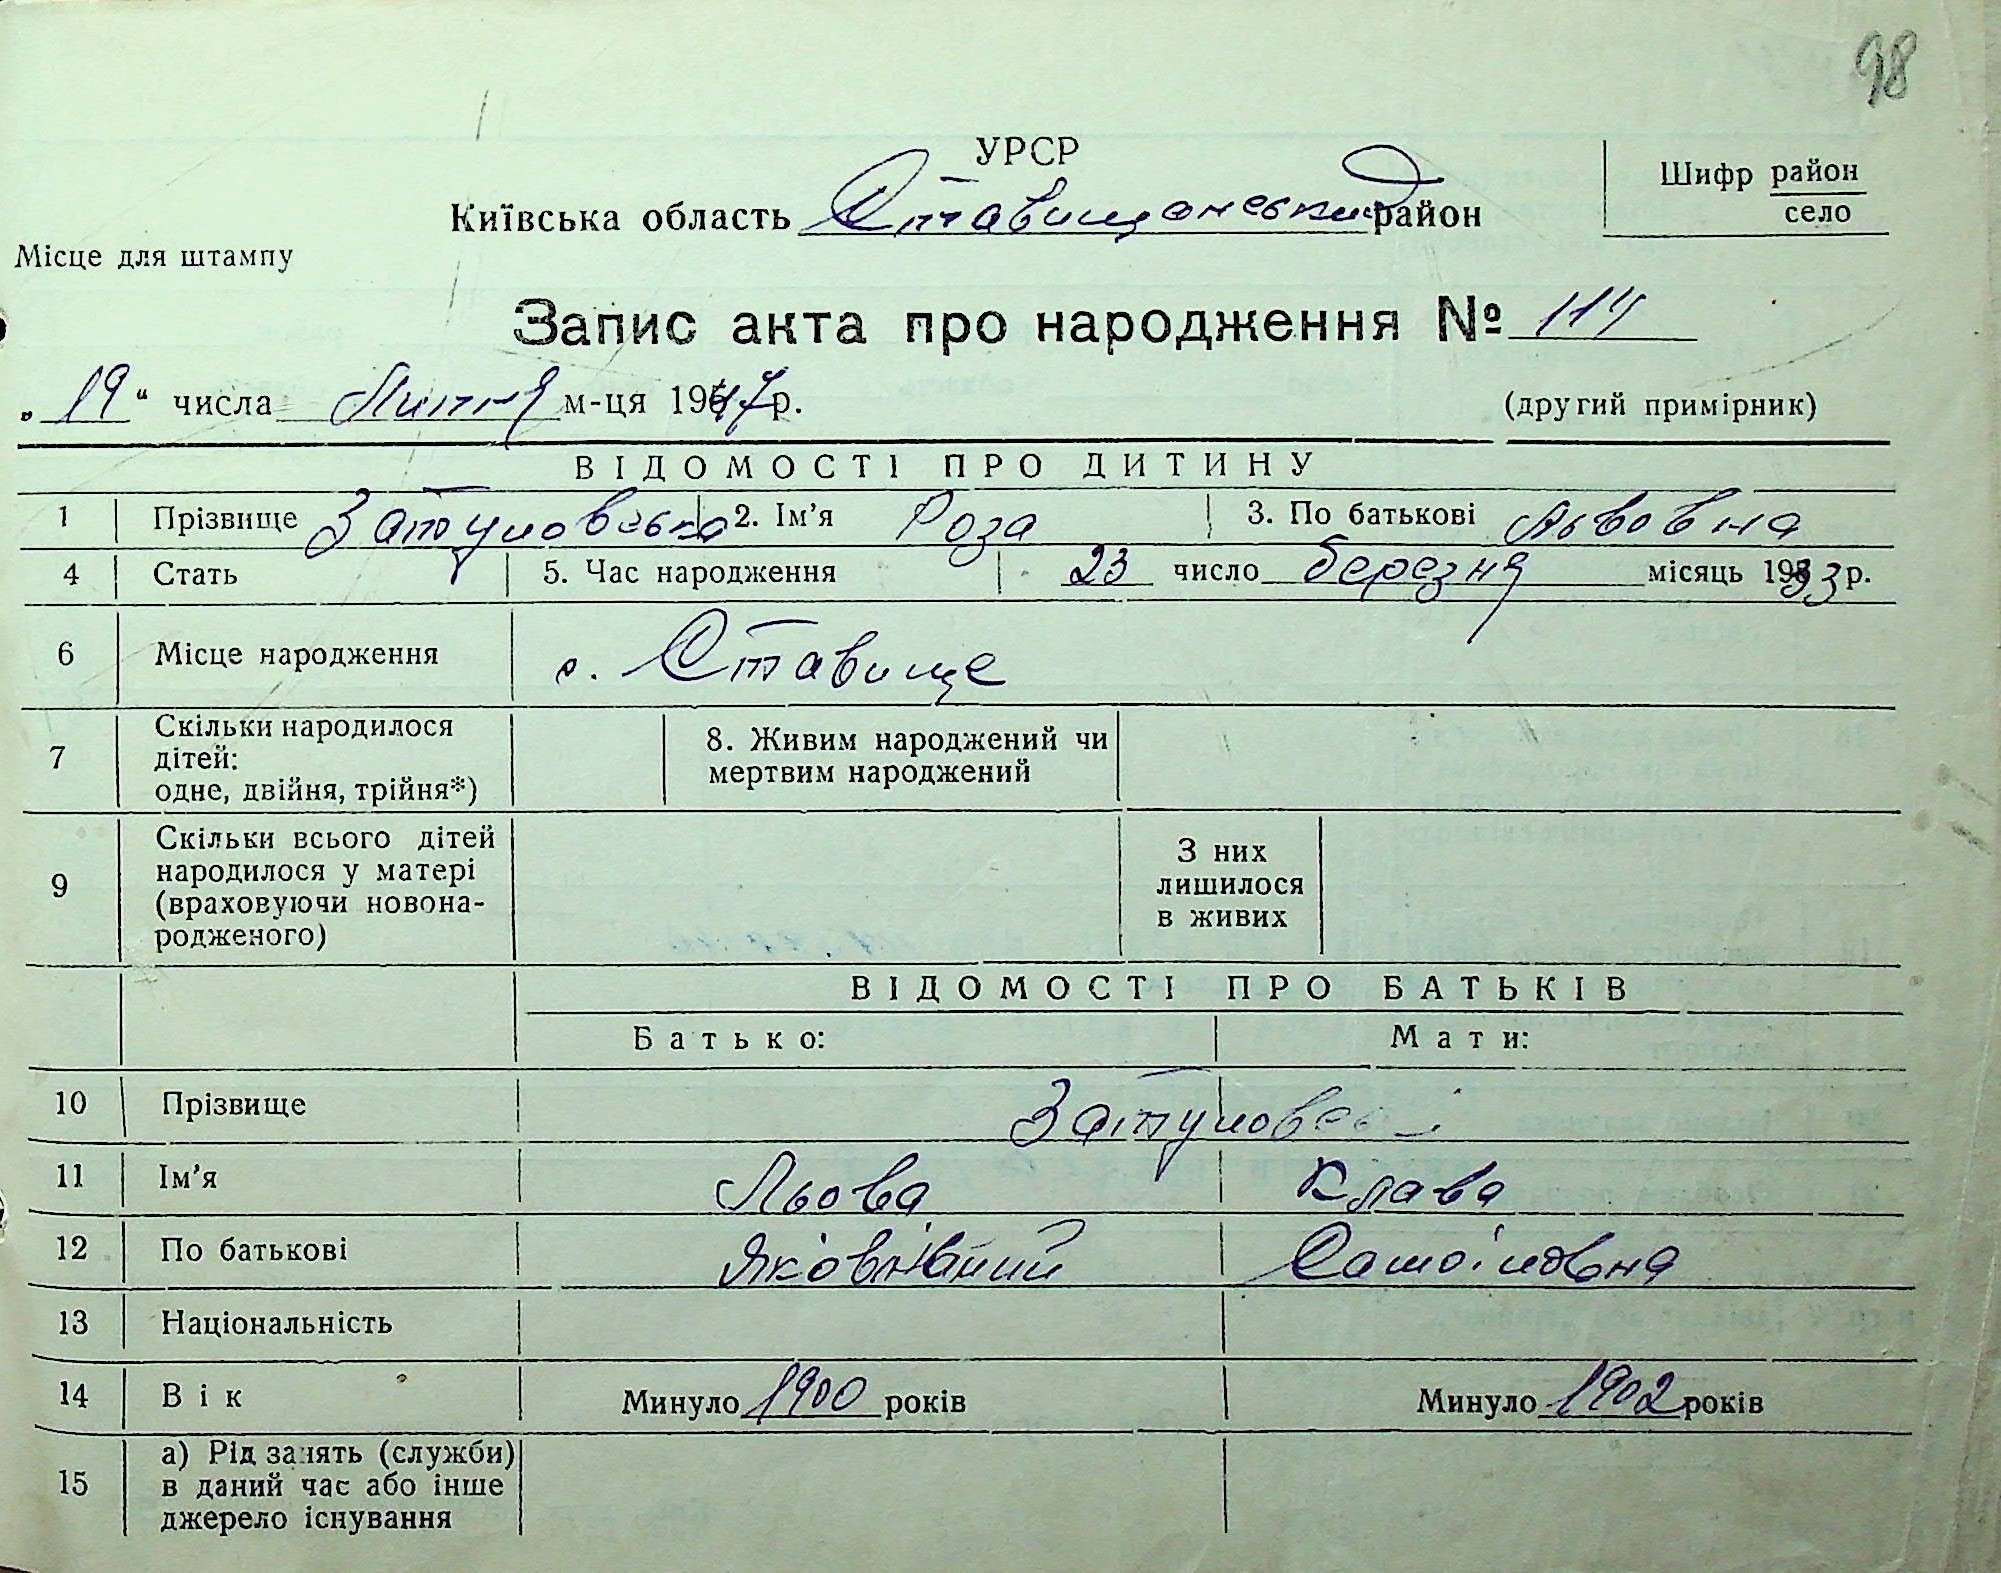 98
УРСР
Київська область Ставищанський район
Шифр район
село
Місце для штампу
Запис акта про народження № 114
„19“ числа Липня м-ця 1947 р.
(другий примірник)
ВІДОМОСТІ ПРО ДИТИНУ
1 Прізвище Затуловська 2. Ім'я Роза 3. По батькові Львовна
4 Стать 5. Час народження 23 число березня місяць 1933 р.
6 Місце народження с. Ставище
7 Скільки народилося дітей: одне, двійня, трійня*) 8. Живим народжений чи мертвим народжений
9 Скільки всього дітей народилося у матері (враховуючи новонародженого) З них лишилося в живих
ВІДОМОСТІ ПРО БАТЬКІВ
Батько: Мати:
10 Прізвище Затуловські
11 Ім'я Льова Клава
12 По батькові Самойловна
13 Національність
14 Вік Минуло 1900 років Минуло 1902 років
15 а) Рід занять (служби) в даний час або інше джерело існування